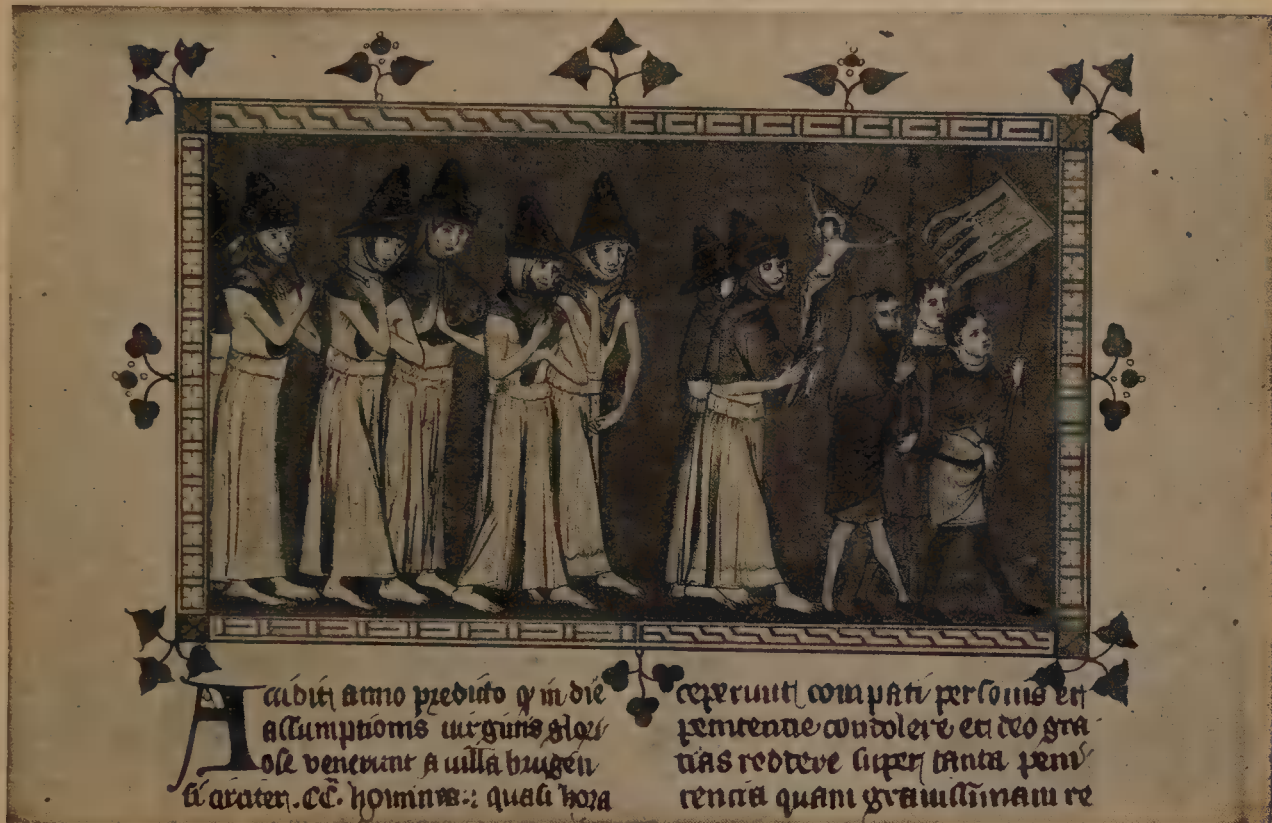 Accidit anno predicto q in die
assumptionis virginis glori
ose venerunt a villa brugen
si circiter .CC. homines: quasi hora
ceperunt compati personis et
penitentie condolere et deo gra
tias reddere super tanta peni
tencia quam gravissimam re